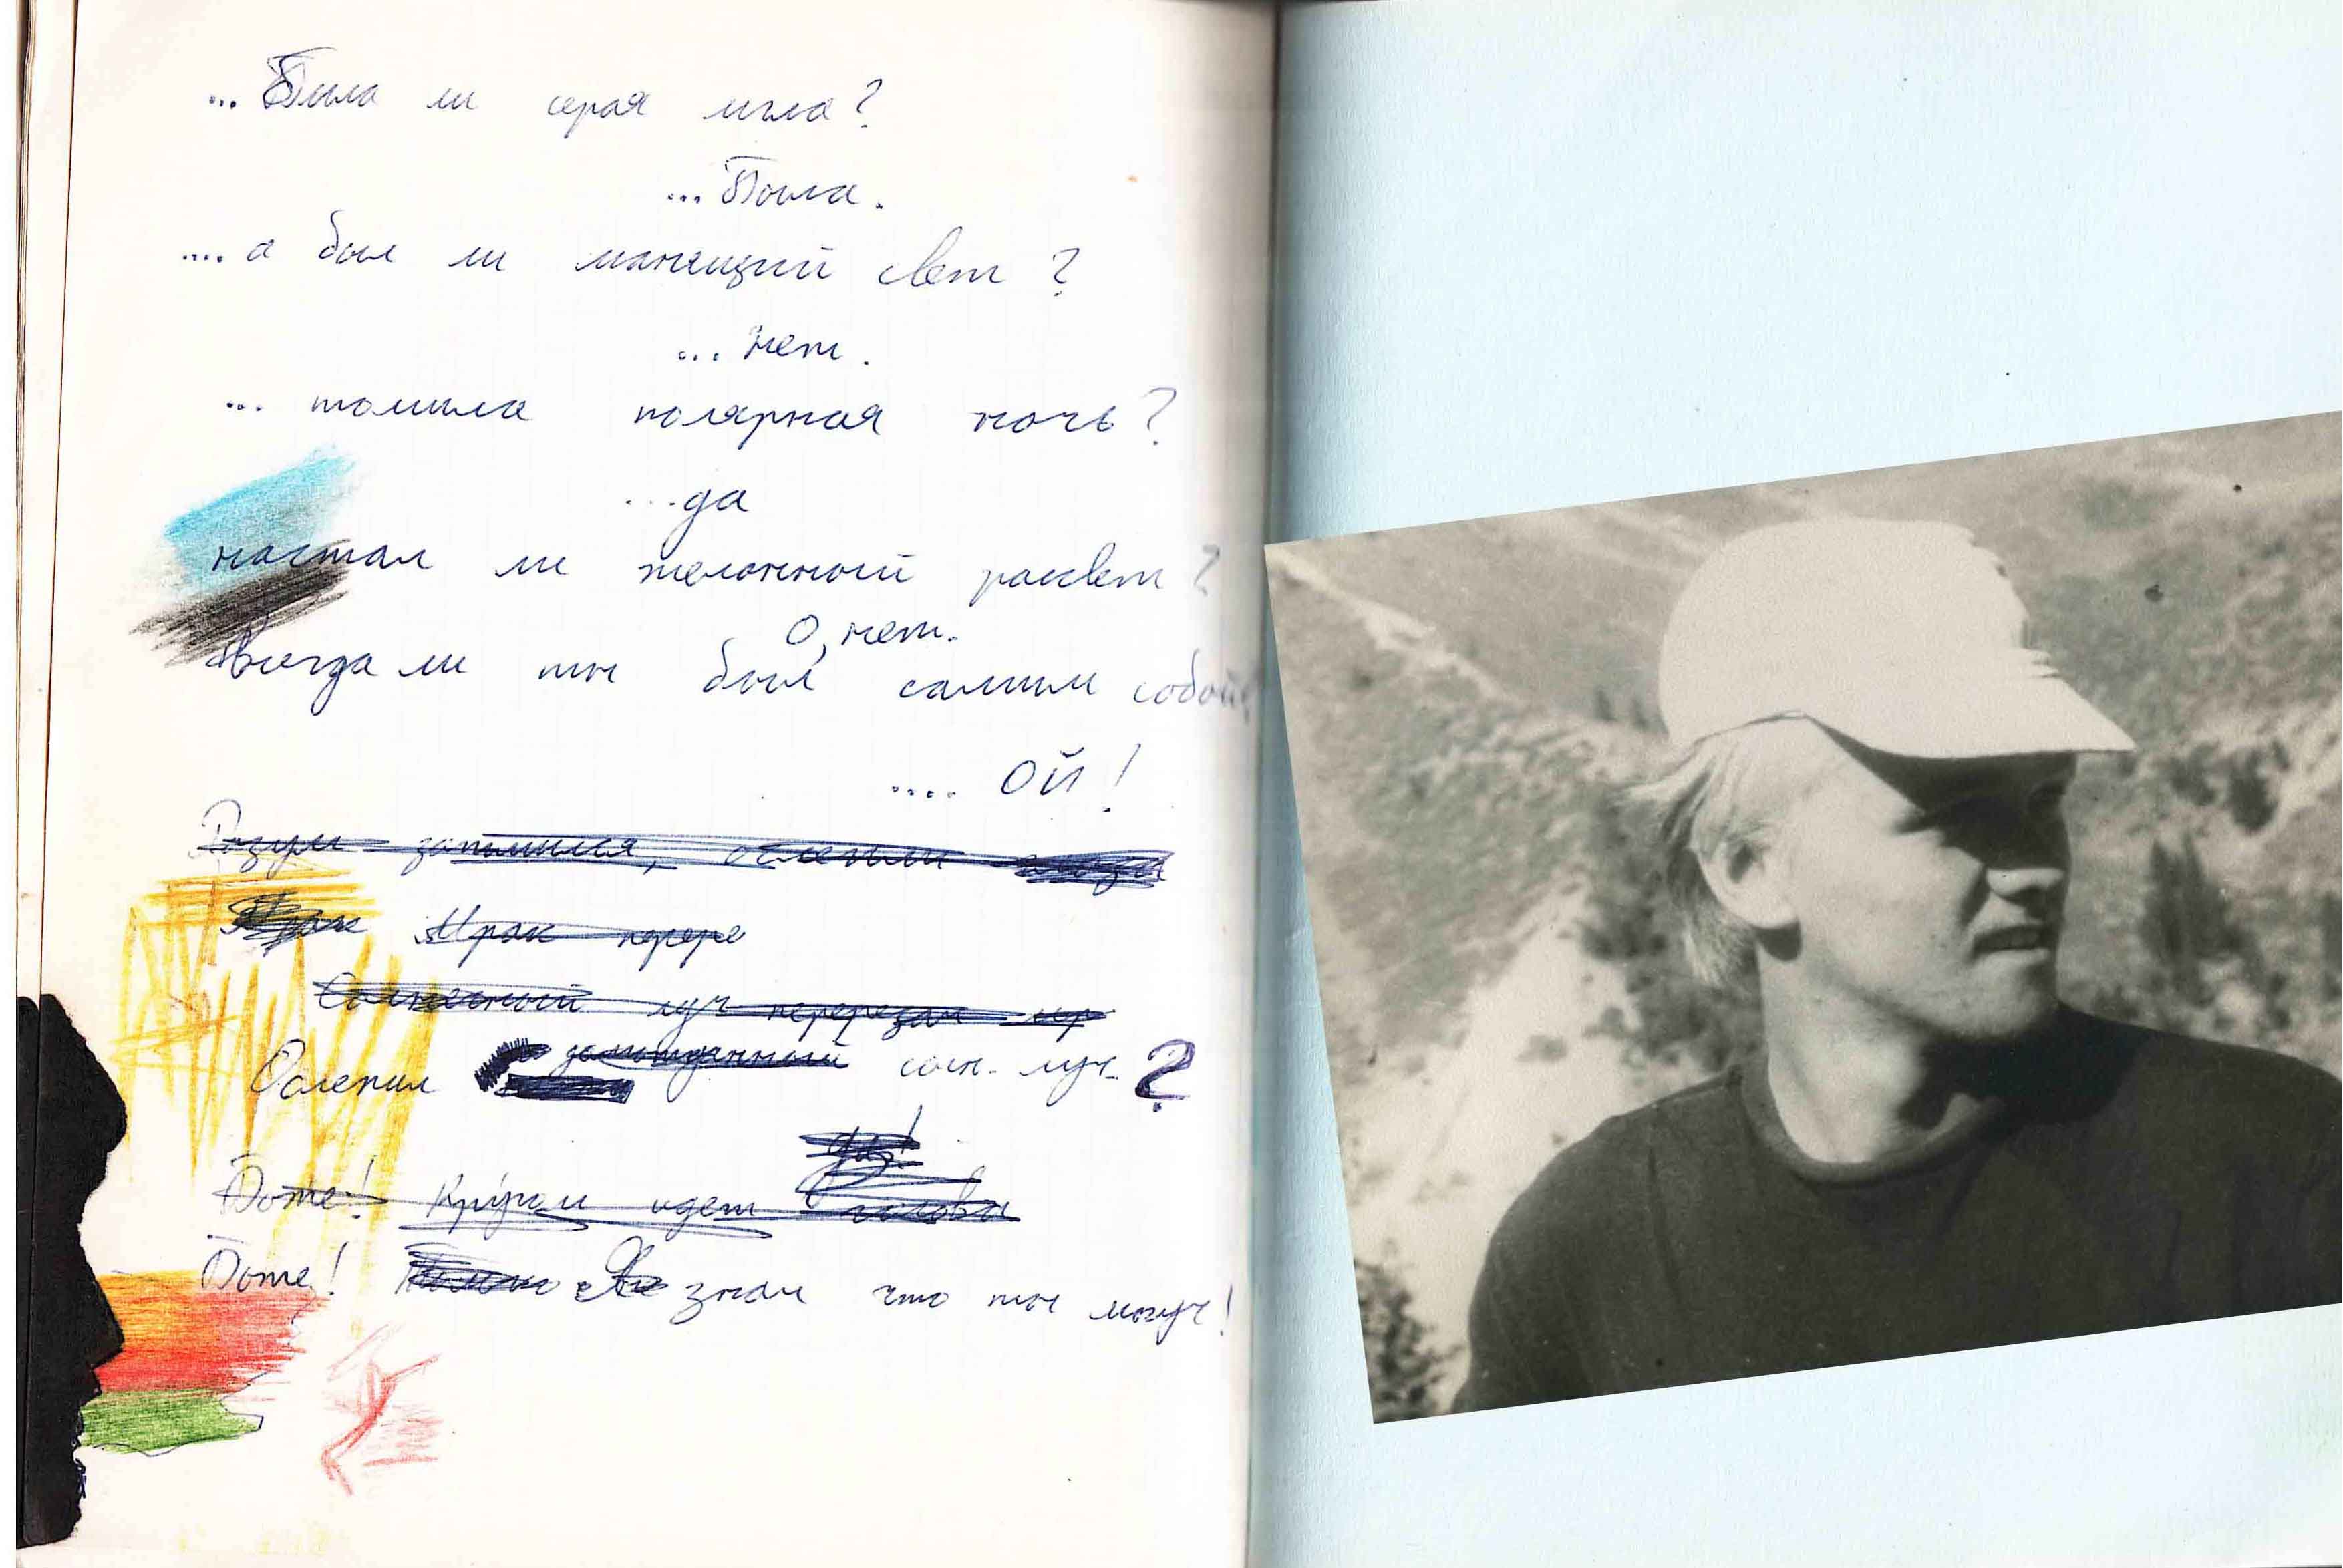 ... Была ли серая мгла?
... Была.
.... а был ли манящий свет?
... нет.
... томила полярная ночь?
...да
настал ли желанный рассвет?
О, нет.
Всегда ли ты был самим собой?
.... ОЙ!
Разум затмился, ослепли глаза
Мрак Мрак перере
Солнечный луч перерезал мр
Ослепил долгожданный солн. луч?
да!
Боже! Кругом идет голова
Боже! Я знал что ты могуч!